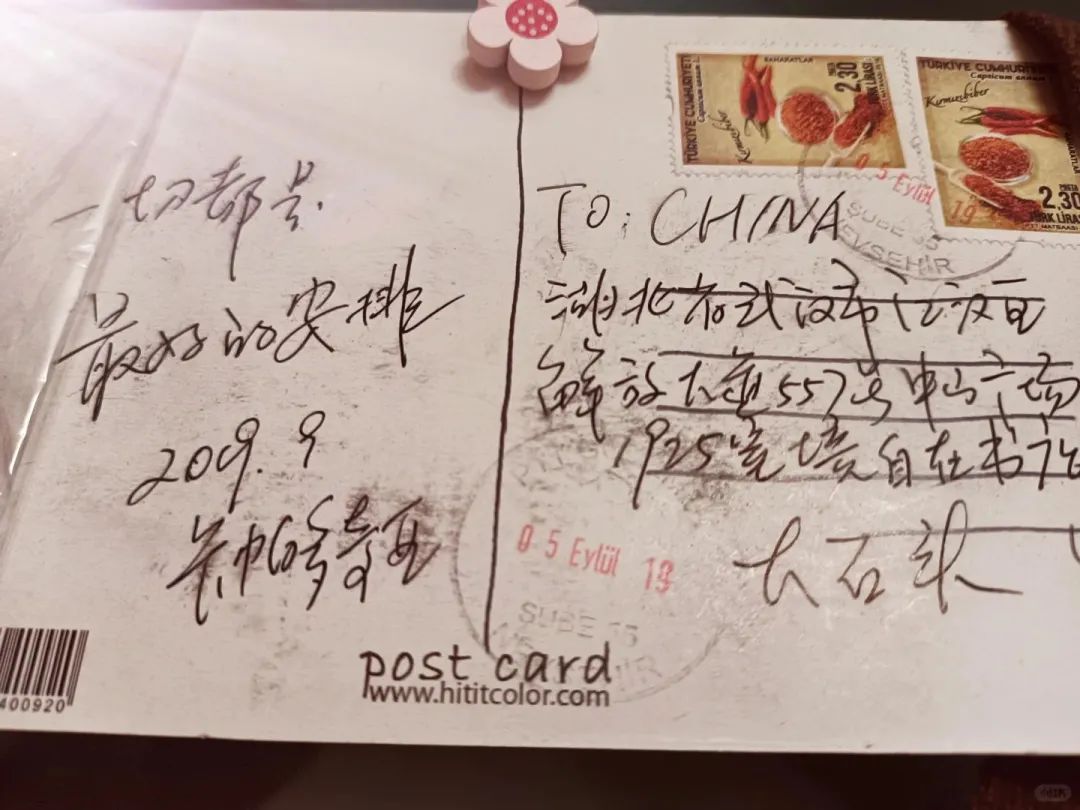 一切都是
最好的安排
2019.9
卡帕多奇亚
TÜRKİYE CUMHURİYETİ
Capsicum annum L.
BAHARATLAR
Kırmızıbiber
2.30
TÜRK LİRASI
TÜRKİYE CUMHURİYETİ
Capsicum annum L.
Kırmızıbiber
2.30
TÜRK LİRASI
PTT MATBAASI
0 5 Eylül 19
SUBE 35
NEVSEHIR
TO: CHINA
湖北省武汉市江汉区
解放大道557号中山广场
1925室
自在书
大石头
0 5 Eylül 19
SUBE 35
post card
www.hititcolor.com
400920